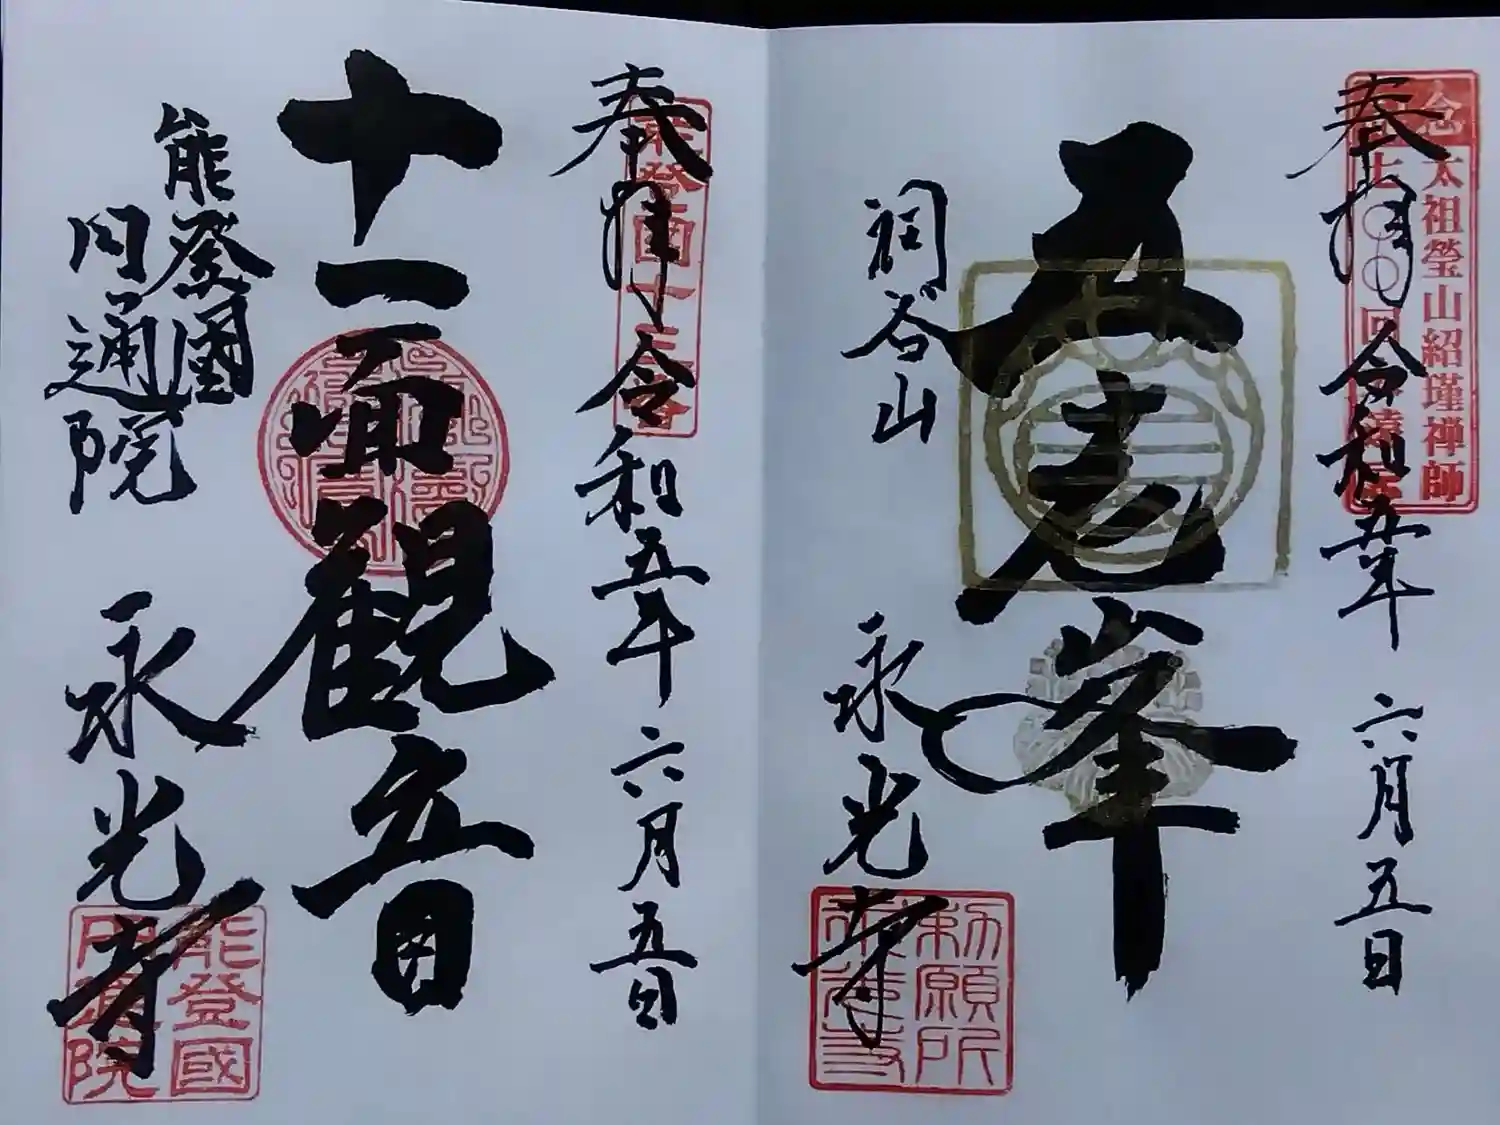 奉拝 令和五年 六月五日
念
太祖瑩山紹瑾禅師
五老峯
洞谷山
永光寺
勅願所
奉拝 令和五年 六月五日
十一面観音
能登國
円通院
永光寺
能登國
円通院